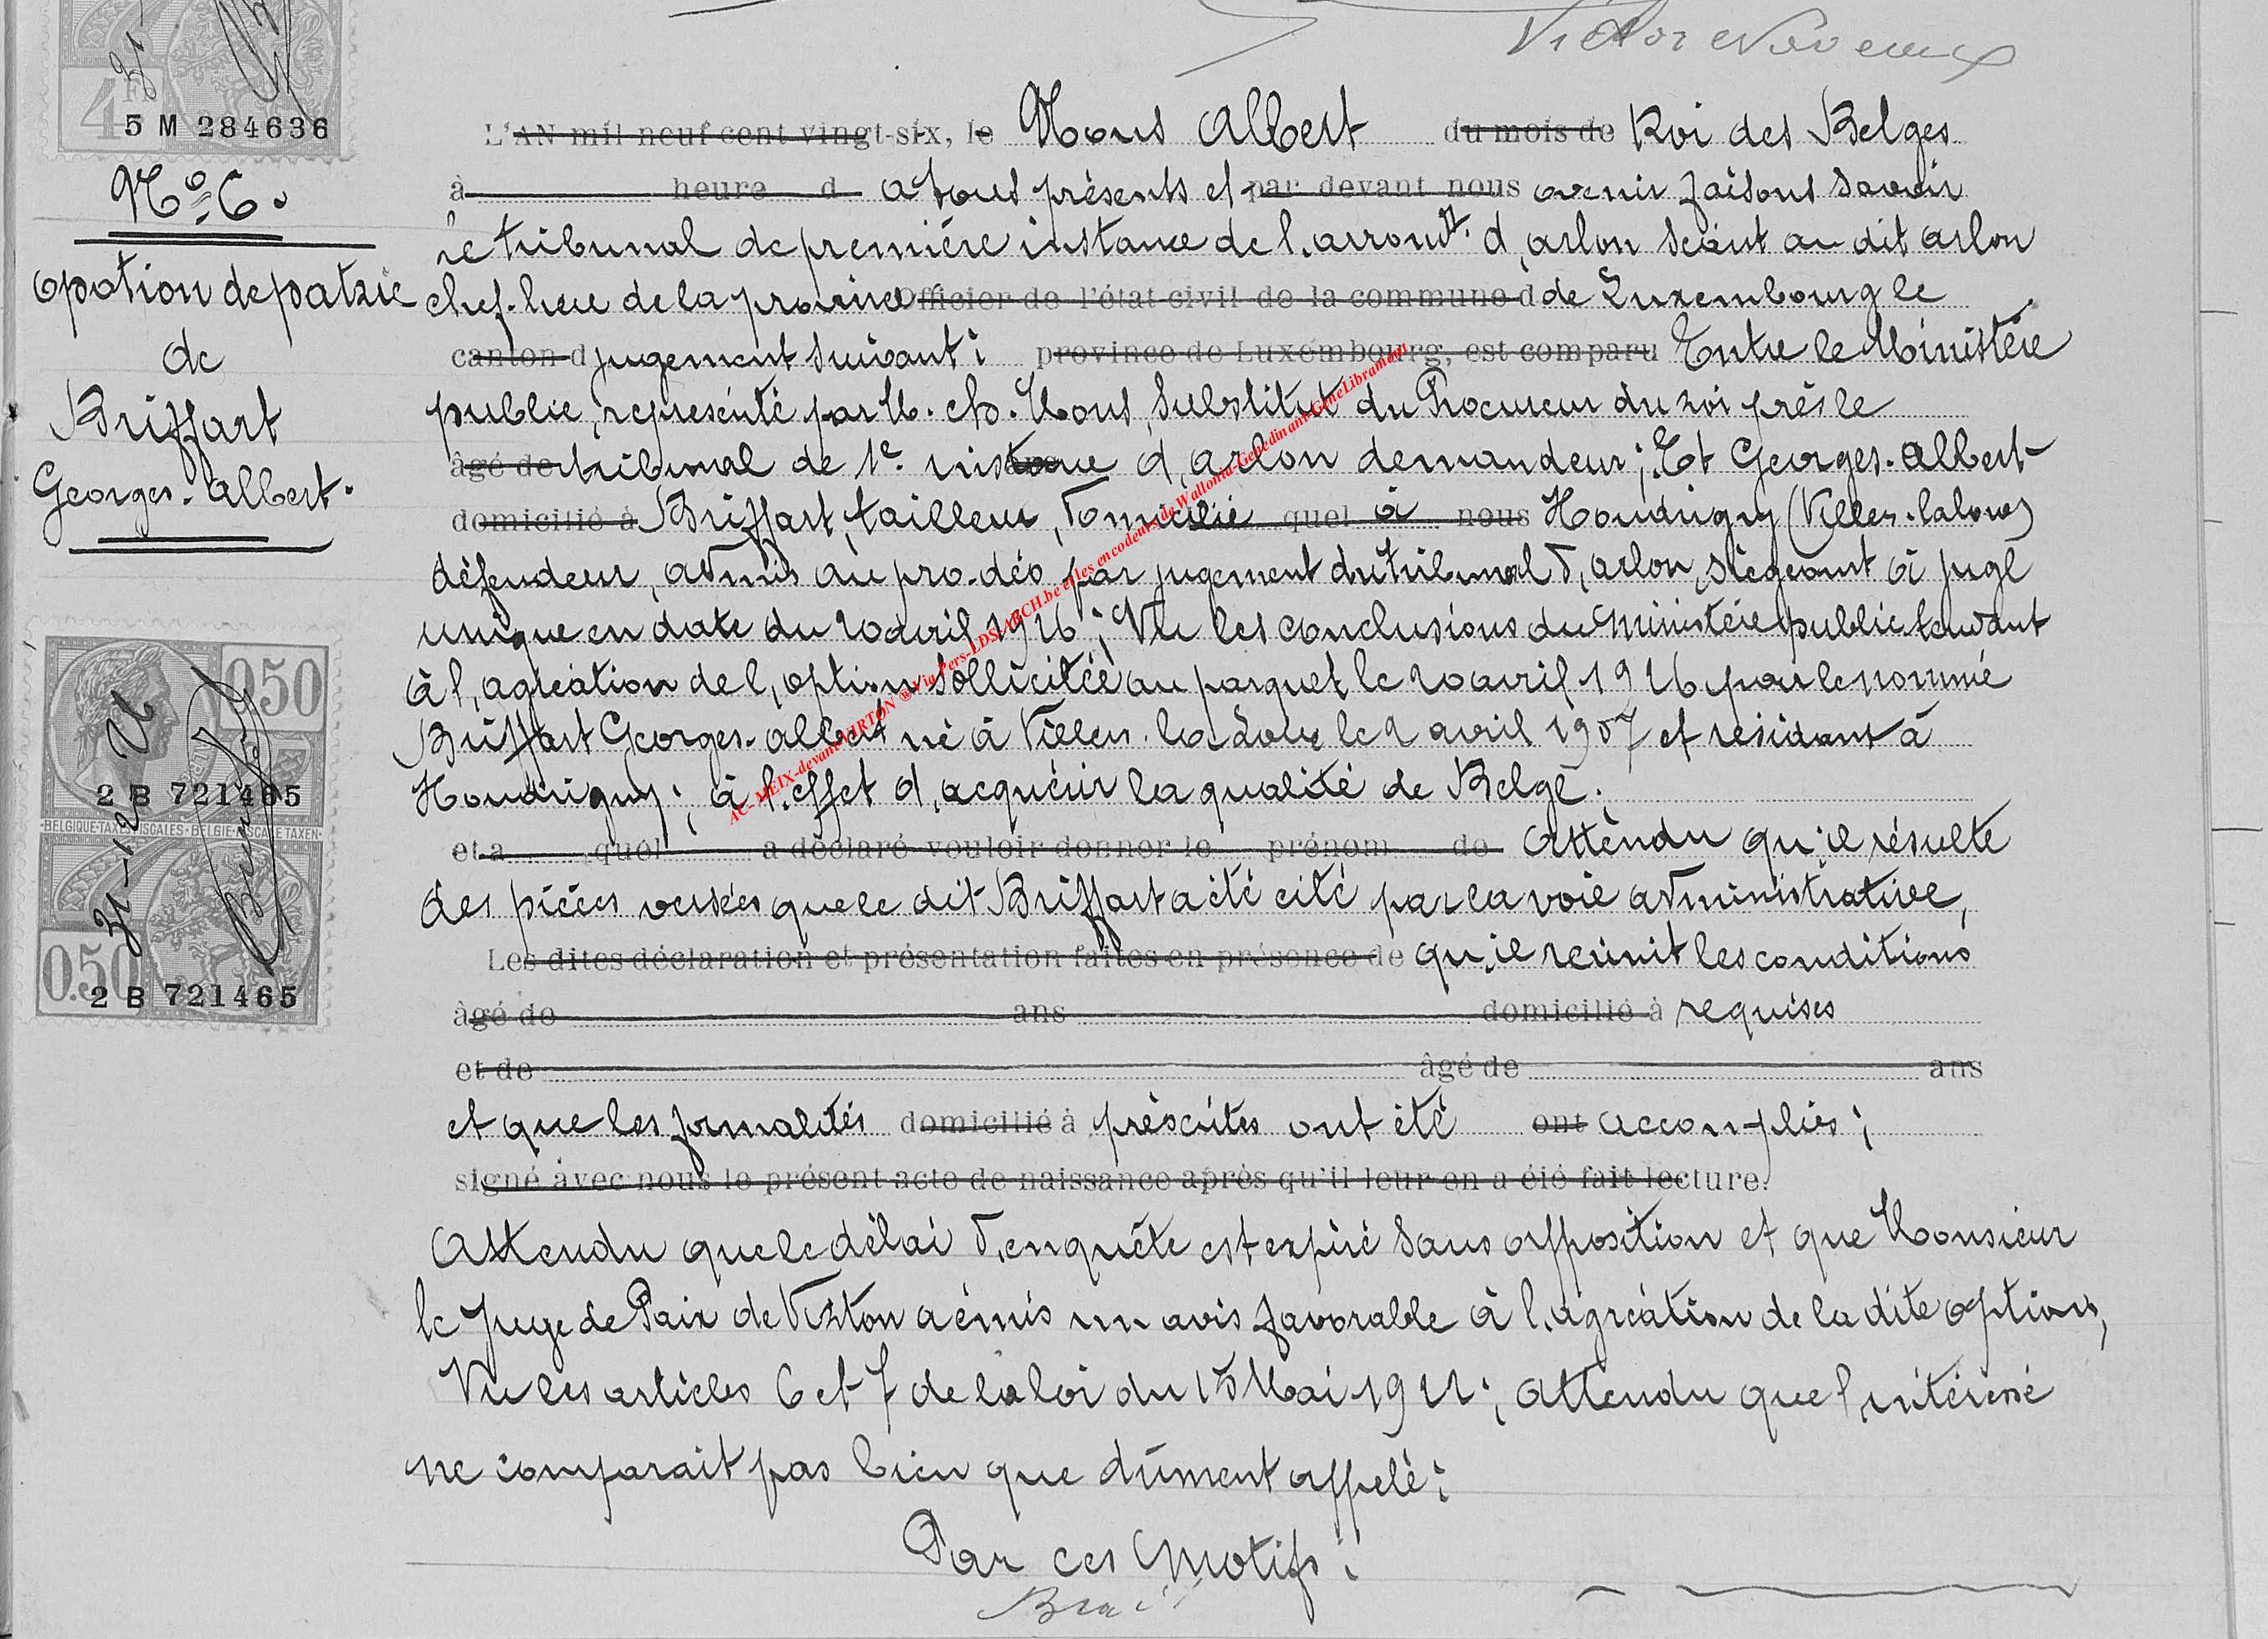 Victor Noveaux
4 Fr
5 M 284636
L'AN mil neuf cent vingt-six, le Nous Albert du mois de Roi des Belges
Nº 6.
à heure d a tous présents et par devant nous avenir faisons savoir
le tribunal de première instance de l,arrondt. d,arlon séant au dit arlon
opotion de patrie
chef-lieu de la province Officier de l'état civil de la commune d de Luxembourg le
de
canton d jugement suivant : province de Luxembourg, est comparu Entre le Ministère
Briffart
public, représenté par M. ch. Mons, Substitut du Procureur du roi près le
Georges-Albert.
âgé de tribunal de 1e. instance ans d,arlon demandeur ; Et Georges-Albert
domicilié à Briffart, tailleur, domicilié quel à nous Houdrigny (Villers-laloue)
défendeur, admis au pro-déo par jugement du tribunal d,arlon, siègeant à juge
unique en date du 20 avril 1926 ; Vu les conclusions du Ministère public tendant
à l,agréation de l,option sollicitée au parquet le 20 avril 1926 par le nommé
Briffart Georges-Albert né à Villers-la-Loue le 2 avril 1907 et résidant à
Houdrigny ; à l,effet d,acquérir la qualité de Belge ;
et a quel a déclaré vouloir donner le prénom de Attendu qu'il résulte
des pièces versées que le dit Briffart a été cité par la voie administrative,
Les dites déclaration et présentation faites en présence de qu,il réunit les conditions
âgé de ans domicilié à requises
et de âgé de ans
et que les formalités domicilié à préscrites ont été ont accomplies ;
signé avec nous le présent acte de naissance après qu'il leur en a été fait lecture.
Attendu que le délai d,enquête est expiré sans opposition et que Monsieur
le Juge de Paix de Virton a émis un avis favorable à l,agréation de la dite option,
Vu les articles 6 et 7 de la loi du 15 Mai 1922 ; attendu que l,intéressé
ne comparait pas bien que dûment appelé ;
Par ces Motifs :
0.50
2 B 721465
BELGIQUE-TAXES FISCALES - BELGIE-FISCALE TAXEN
31-12 26
0.50
2 B 721465
AC- MEIX-devant-VIRTON ® Vig Pers-LDS-ARCH.be et les encodeurs de Wallonia-Genedinant-GeneLibramont